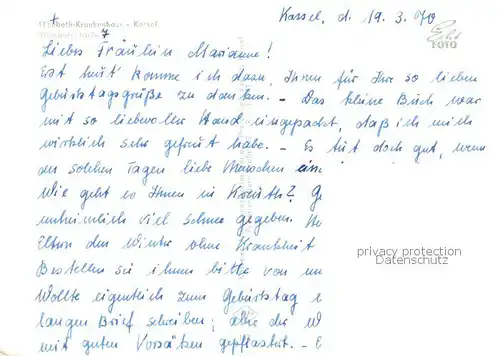 Elisabeth-Krankenhaus - Kassel
Kassel, d. 19.3.70
Echt
FOTO
7
Liebes Fräulein Marianne!
Erst heut komme ich dazu, Ihnen für Ihre so lieben
Geburtstagsgrüße zu danken. - Das kleine Buch war
mit so liebevoller Hand eingepackt, daß ich mich
wirklich sehr gefreut habe. - Es tut doch gut, wenn
an solchen Tagen liebe Menschen eine
Wie geht es Ihnen in Kreuth? G
unheimlich viel Schnee gegeben.
Eltern den Winter ohne Krankheit
Bestellen sie ihnen bitte von
Wollte eigentlich zum Geburtstag
langen Brief schreiben; aber der W
mit guten Vorsätzen gepflastert. - E
privacy protection
Datenschutz